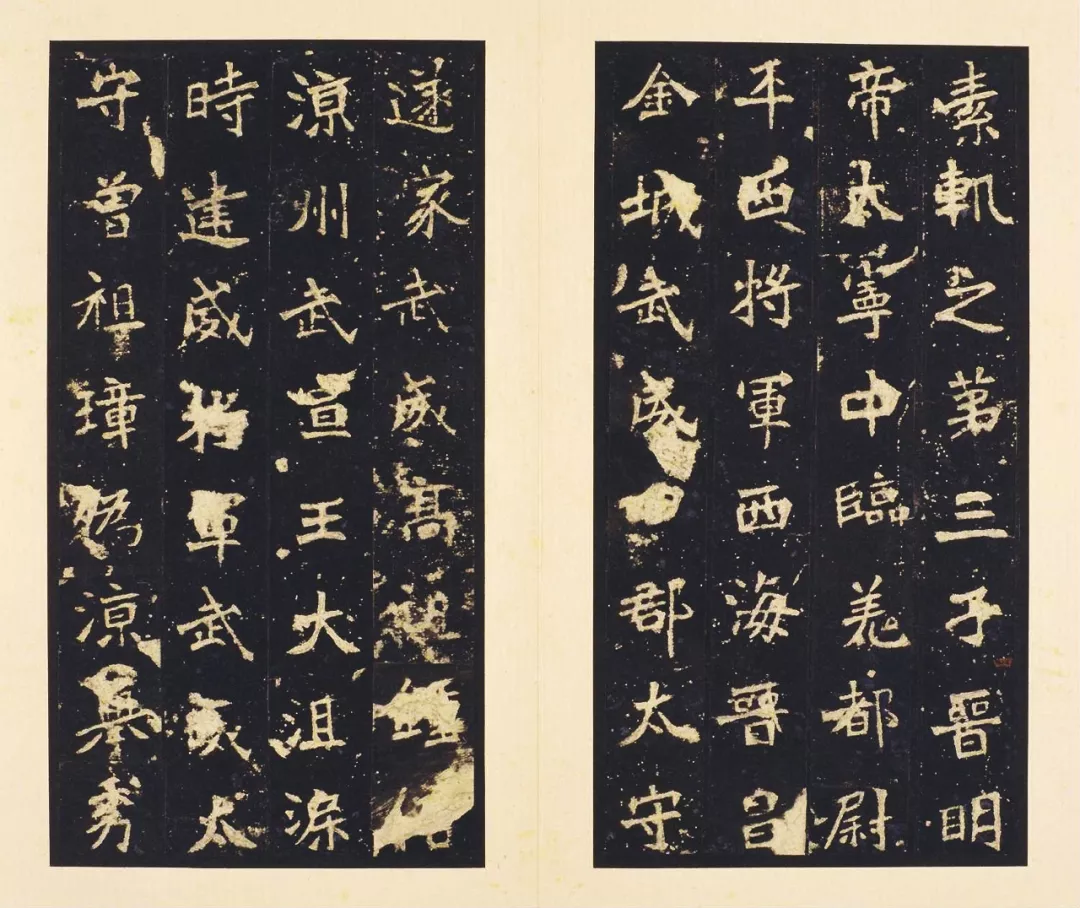 素軌之第三子晉明
帝太寧中臨羌都尉
平西將軍西海晉昌
金城武威郡太守
遂家武威高祖鍾
涼州武宣王大沮渠
時建威將軍武威太
守曾祖璋偽涼舉秀